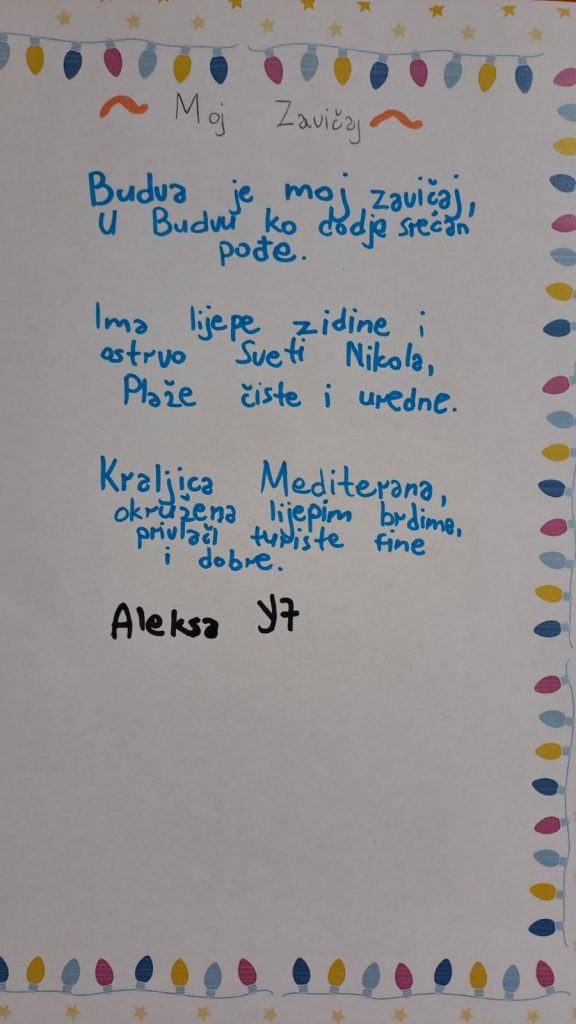 Moj Zavičaj
Budva je moj zavičaj,
U Budvu ko dodje srećan
pođe.
Ima lijepe zidine i
ostrvo Sveti Nikola,
Plaže čiste i uredne.
Kraljica Mediterana,
okružena lijepim brdima,
privlači turiste fine
i dobre.
Aleksa Y7